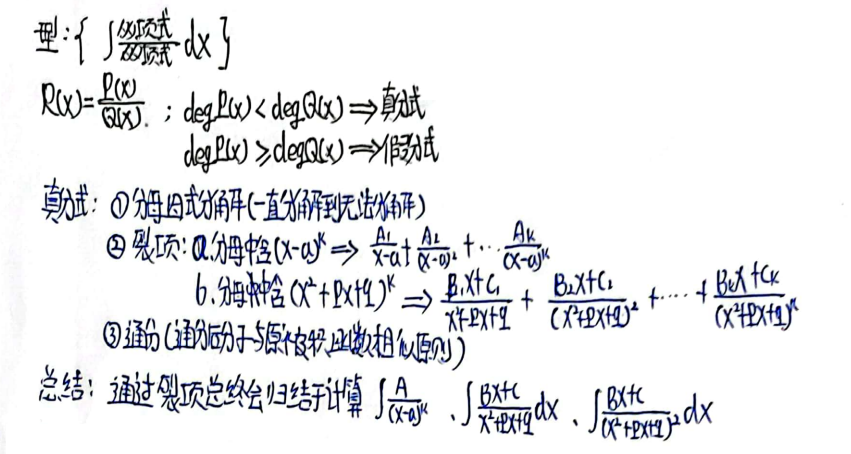 型:{ ∫ 多项式/多项式 dx }
R(x)=P(x)/Q(x) ; degP(x)<degQ(x)⇒真分式
degP(x)≥degQ(x)⇒假分式
真分式: ①分母因式分解(一直分解到无法分解)
②裂项: a.分母中含(x-a)^k ⇒ A₁/(x-a) + A₂/(x-a)² + ⋯ A_k/(x-a)^k
b.分母中含(x²+px+q)^k ⇒ (B₁x+C₁)/(x²+px+q) + (B₂x+C₂)/(x²+px+q)² + ⋯⋯ + (B_kx+C_k)/(x²+px+q)^k
③通分(通分后分子与原来比较,系数相似原则)
总结: 通过裂项总终会归结于计算 ∫ A/(x-a)^k 、∫ (Bx+C)/(x²+px+q) dx 、∫ (Bx+C)/(x²+px+q)² dx